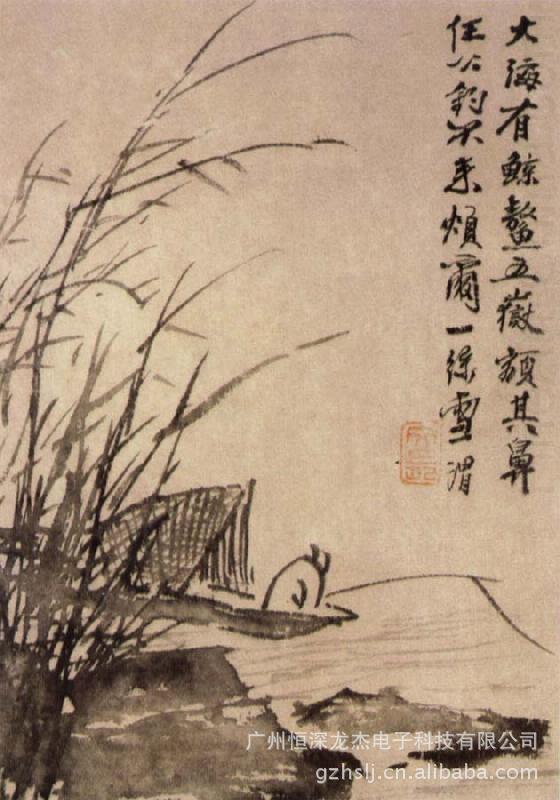 大海有鯨鰲五嶽額其鼻
任公釣不來煩爾一雪渭
广州恒深龙杰电子科技有限公司
gzhslj.cn.alibaba.com